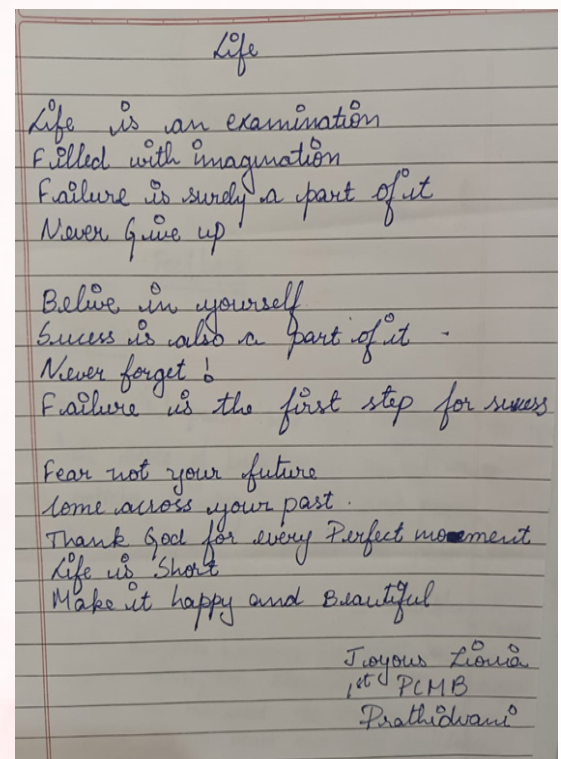 Life
Life is an examination
Filled with imagination
Failure is surely a part of it
Never Give up
Belive in yourself
Sucess is also a part of it
Never forget !
Failure is the first step for sucess
Fear not your future
Come across your past.
Thank God for every Perfect movement
Life is Short
Make it happy and Beautiful
Joyous Liona
1st PCMB
Prathidwani